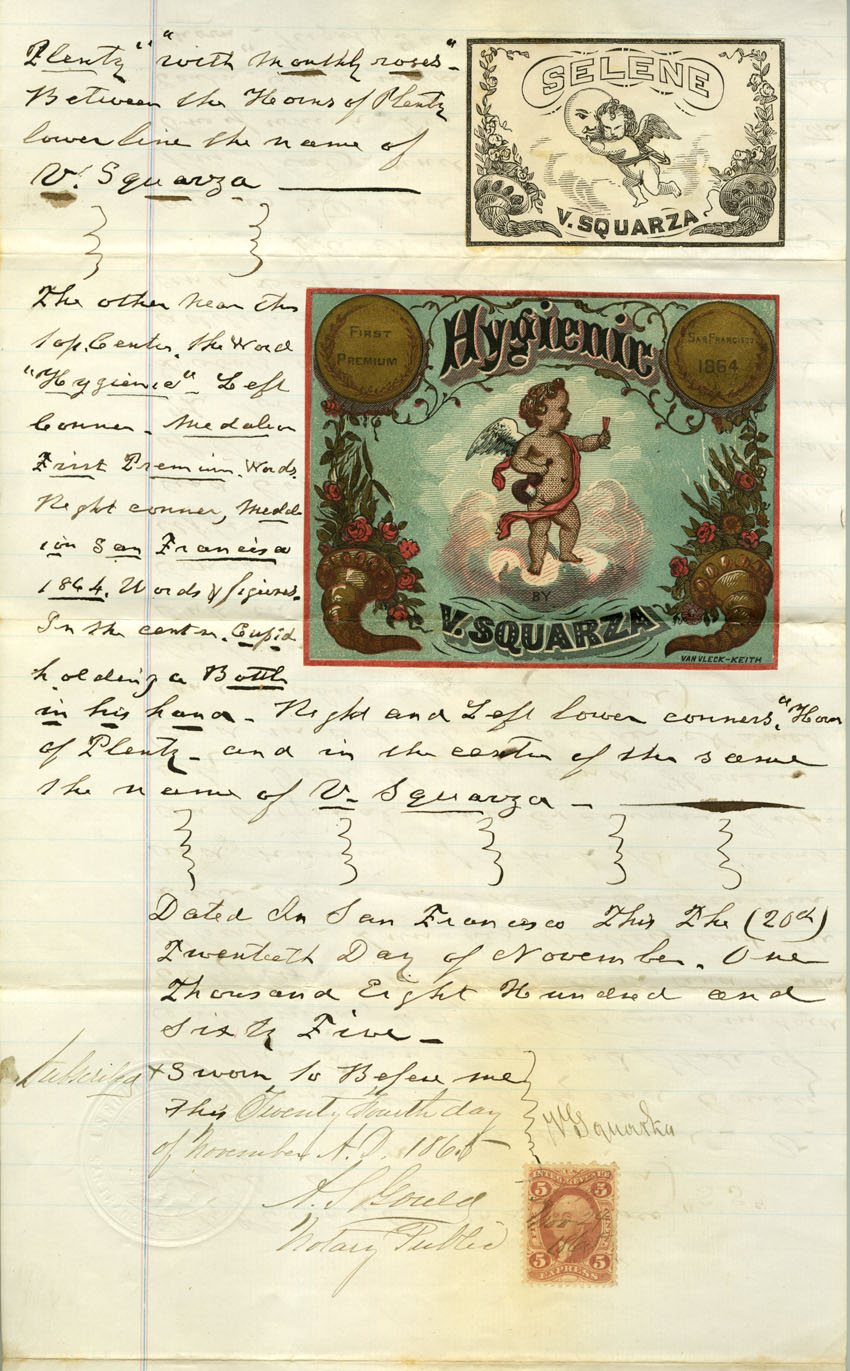 Plenty" "with monthly roses"-
Between the Horns of Plenty
lower line the name of
V. Squarza
SELENE
V. SQUARZA
The other near the
top. Center. the Word
"Hygienic" - Left
Conner - Medalion
First Premium. Words.
Right conner, Medal-
ion San Francisco
1864. Words & figures.
In the centre. Cupid
holding a Bottle
in his hand - Right and Left lower conners, "Horn
of Plenty - and in the centre of the same
the name of V. Squarza -
FIRST
PREMIUM
Hygienic
SAN FRANCISCO
1864
BY
V. SQUARZA
VAN VLECK-KEITH
Dated In San Francisco This The (20th)
Twentieth Day of November. One
Thousand Eight Hundred and
Sixty Five -
Subscribed & Sworn to Before me
this Twenty Fourth day
of November A.D. 1865
V Squarza
A. S. Gould
Notary Public
5 5
Nov 24
186
5 5
EXPRESS